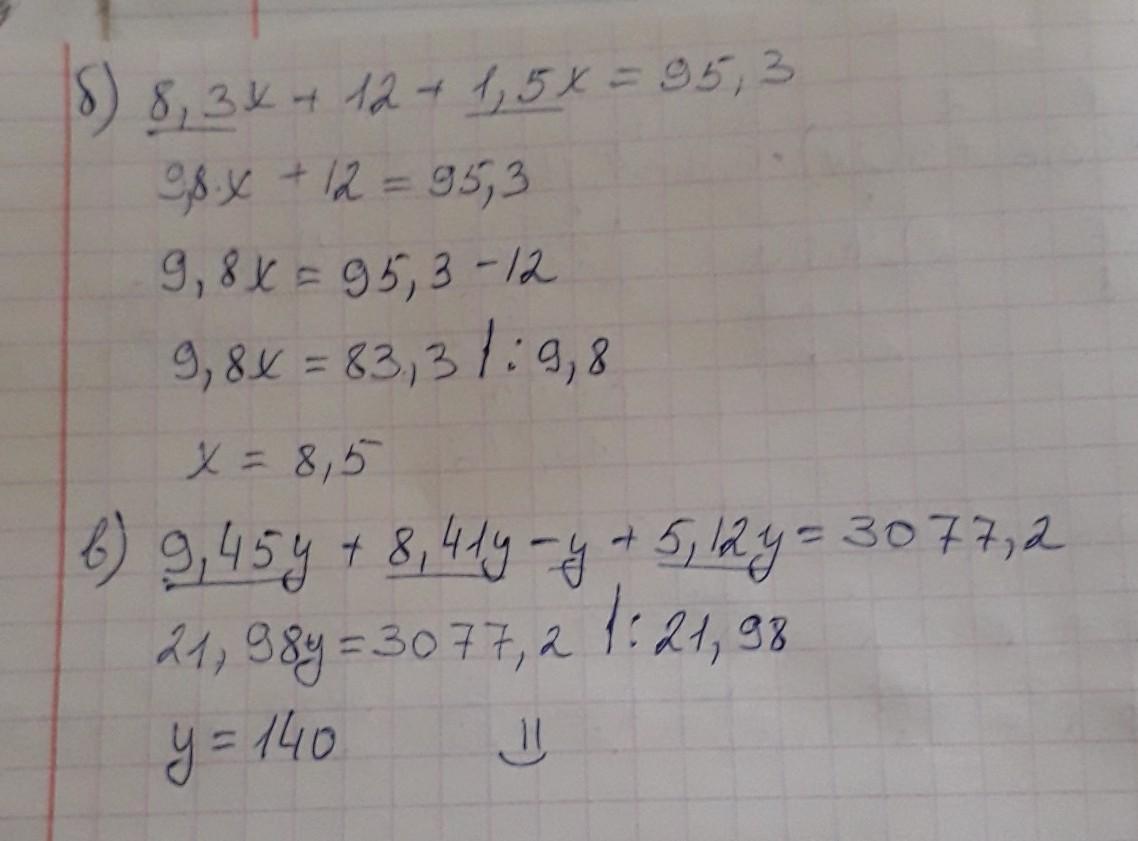 б) 8,3x + 12 + 1,5x = 95,3
9,8·x + 12 = 95,3
9,8x = 95,3 - 12
9,8x = 83,3 |: 9,8
x = 8,5
в) 9,45y + 8,41y - y + 5,12y = 3077,2
21,98y = 3077,2 |: 21,98
y = 140